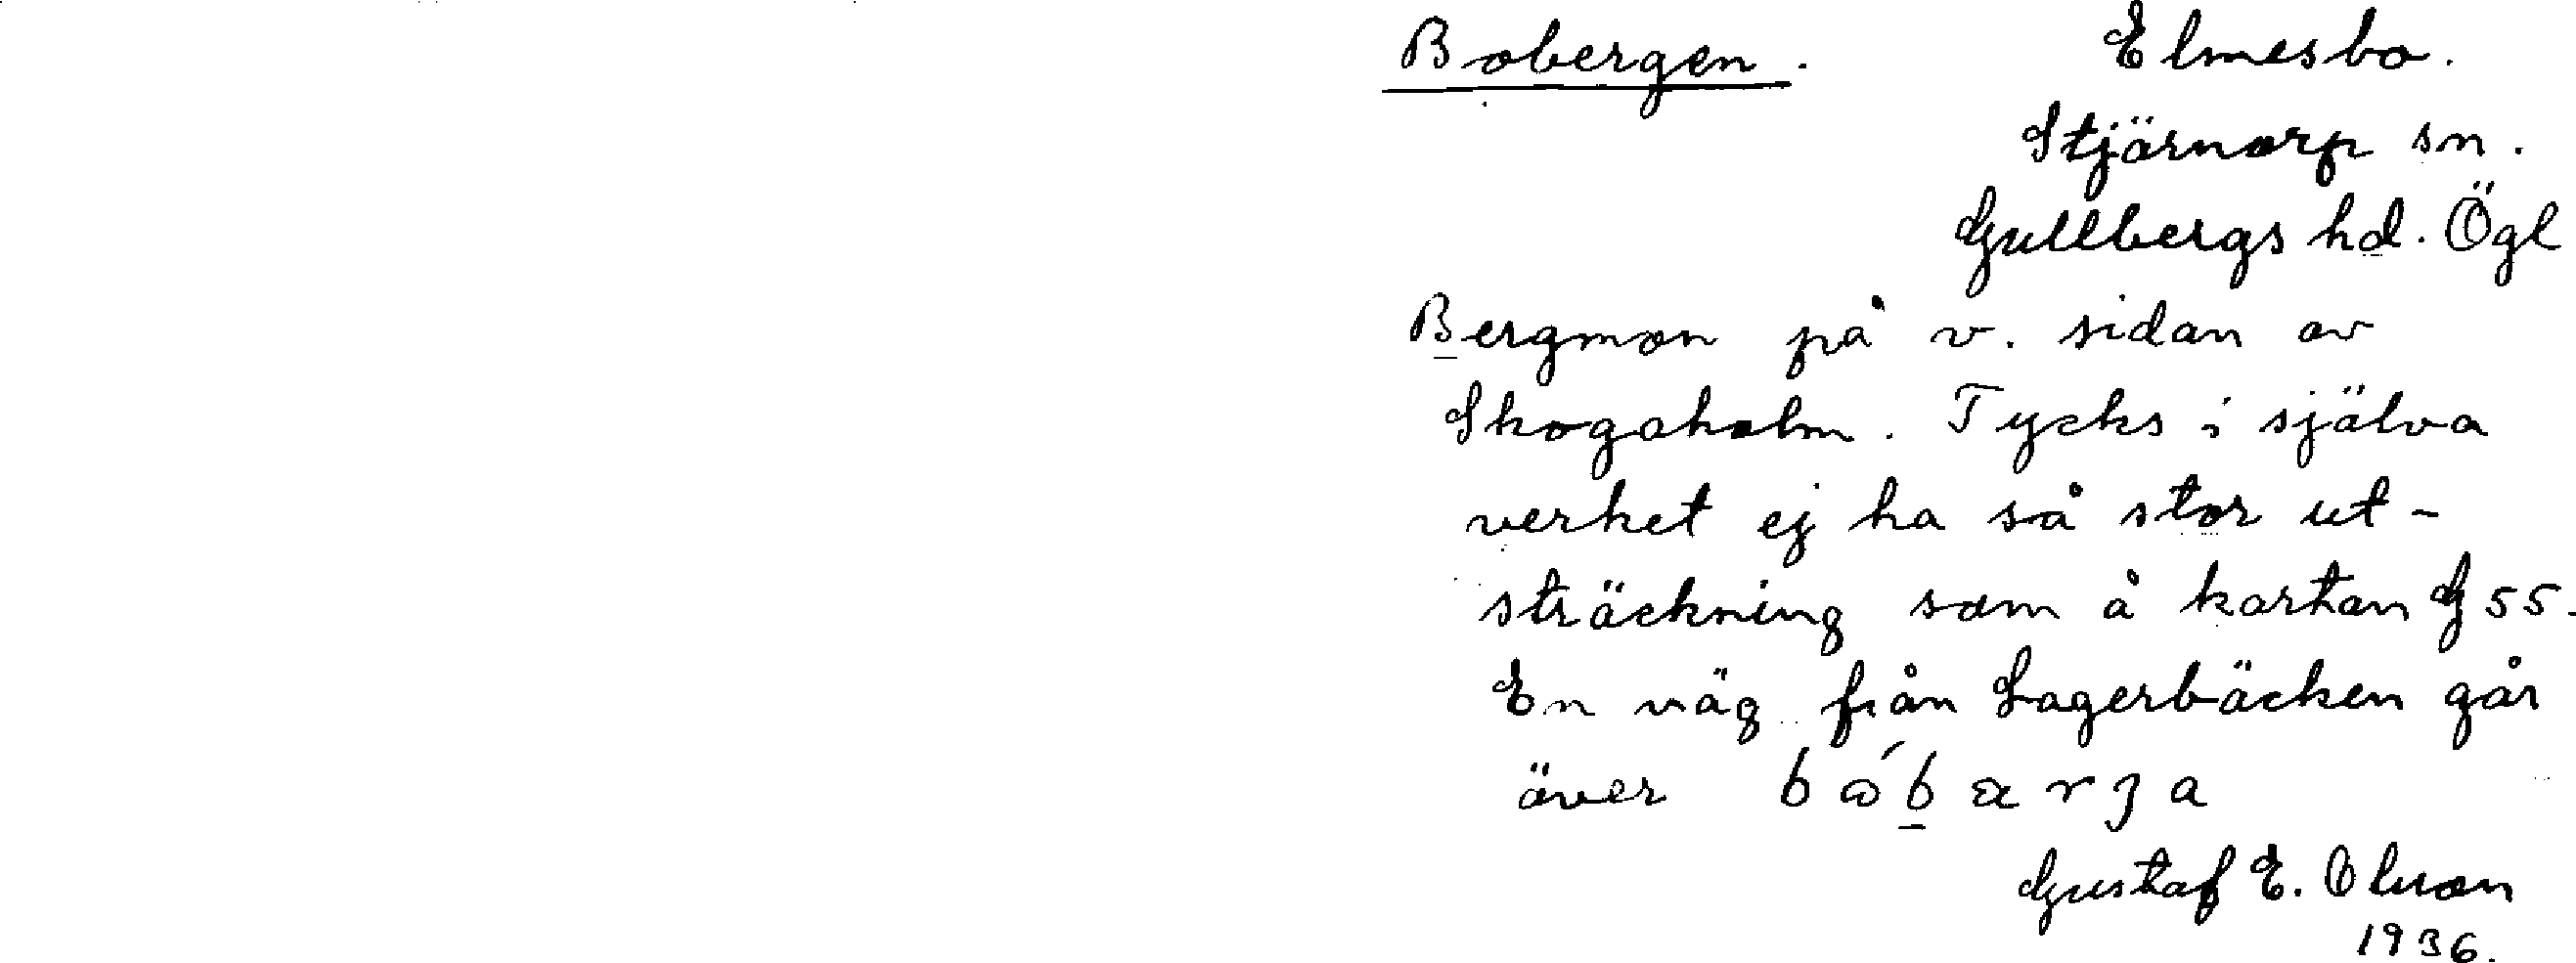 Bobergen. Elmesbo.
Stjärnorp sn.
Gullbergs hd. Ögl
Bergmon på v. sidan av
Skogaholm. Tycks i själva
verket ej ha så stor ut-
sträckning som å kartan G 55.
En väg från Lagerbäcken går
över
Gustaf E. Olsson
1936.